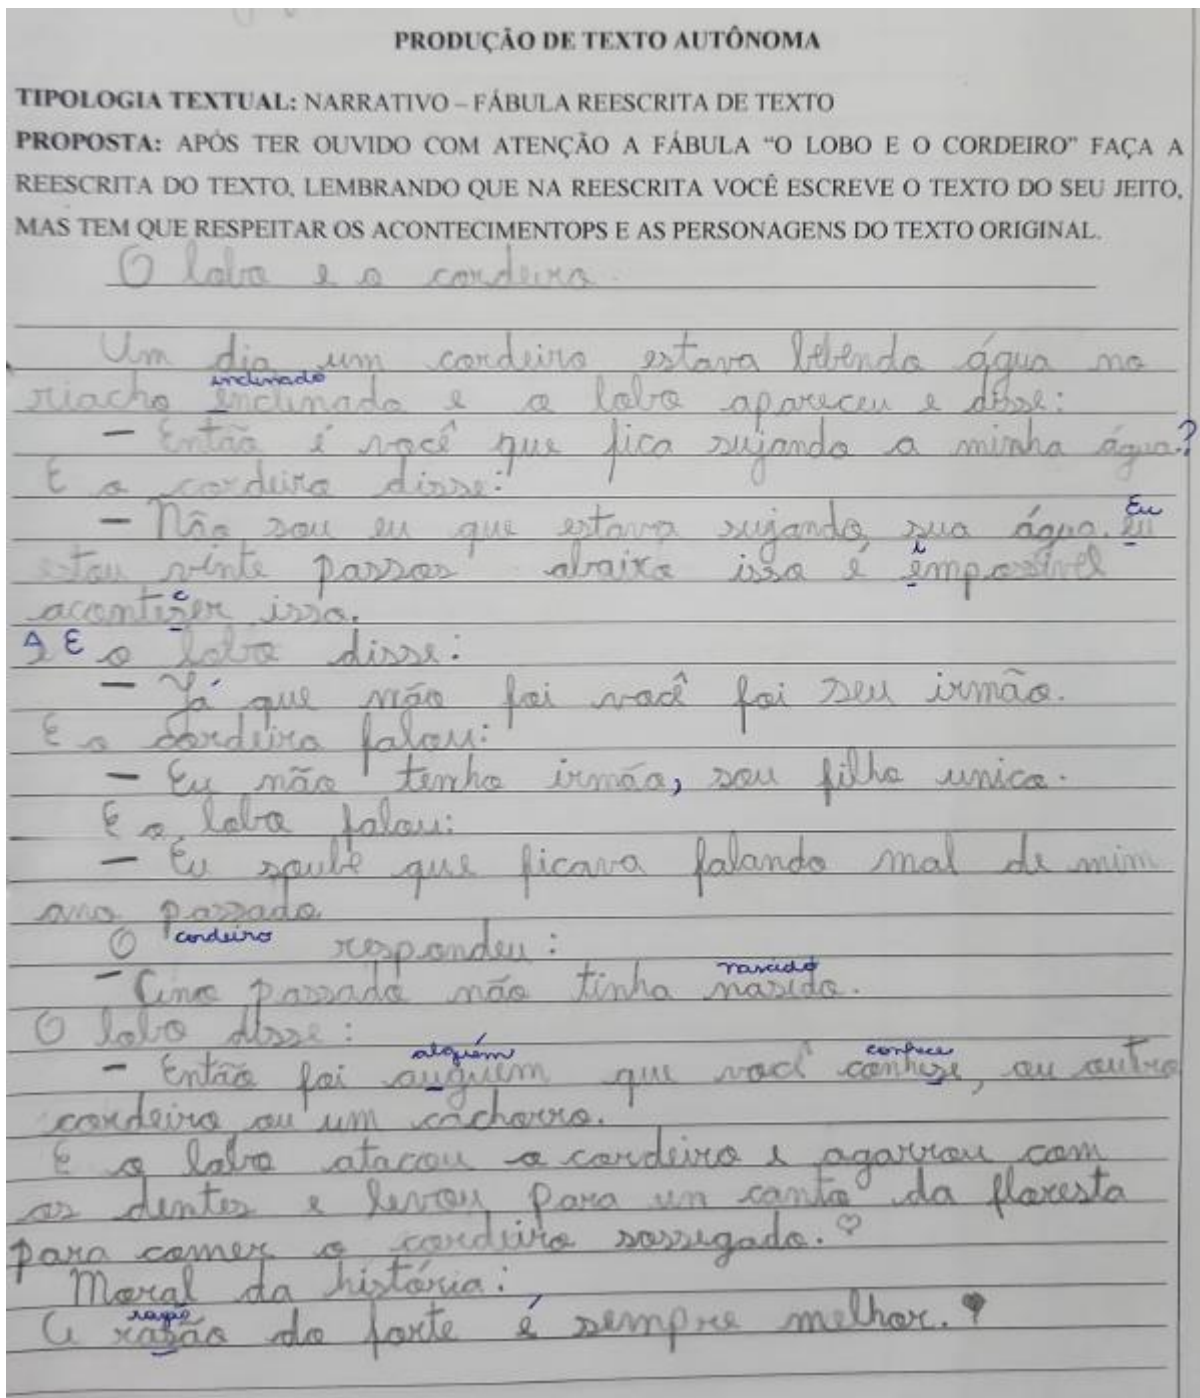 PRODUÇÃO DE TEXTO AUTÔNOMA
TIPOLOGIA TEXTUAL: NARRATIVO – FÁBULA REESCRITA DE TEXTO
PROPOSTA: APÓS TER OUVIDO COM ATENÇÃO A FÁBULA “O LOBO E O CORDEIRO” FAÇA A
REESCRITA DO TEXTO, LEMBRANDO QUE NA REESCRITA VOCÊ ESCREVE O TEXTO DO SEU JEITO,
MAS TEM QUE RESPEITAR OS ACONTECIMENTOPS E AS PERSONAGENS DO TEXTO ORIGINAL.
O lobo e o cordeiro.
Um dia um cordeiro estava bebendo água no
inclinado
riacho enclinado e o lobo apareceu e disse:
– Então é você que fica sujando a minha água?
E o cordeiro disse:
– Não sou eu que estava sujando sua água. eu
Eu
estou vinte passos abaixo isso é emposível
i
aconteser isso.
c
E o lobo disse:
– Já que não foi você foi seu irmão.
E o cordeiro falou:
– Eu não tenho irmão, sou filho unico.
E o lobo falou:
– Eu soube que ficava falando mal de mim
ano passado
O cordeiro respondeu:
nascido
– Ano passado não tinha nasido.
O lobo disse:
alguém conhece
– Então foi auguem que você conhese, ou outro
cordeiro ou um cachorro.
E o lobo atacou o cordeiro e agarrou com
os dentes e levou para un canto da floresta
para comer o cordeiro sossegado. ♡
Moral da história:
razão
A rasão do forte é sempre melhor. ♥